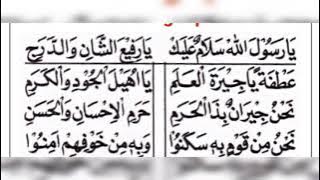 يَا رَسُوْلَ اللهِ سَلَامٌ عَلَيْكَ يَا رَفِيْعَ الشَّانِ وَالدَّرَجِ
عَطْفَةً يَا جِيْرَةَ الْعَلَمِ يَا اُهَيْلَ الْجُوْدِ وَالْكَرَمِ
نَحْنُ جِيْرَانٌ بِذَا الْحَرَمِ حَرَمِ الْاِحْسَانِ وَالْحَسَنِ
نَحْنُ مِنْ قَوْمٍ بِهِ سَكَنُوْا وَبِهِ مِنْ خَوْفِهِمْ اَمِنُوْا